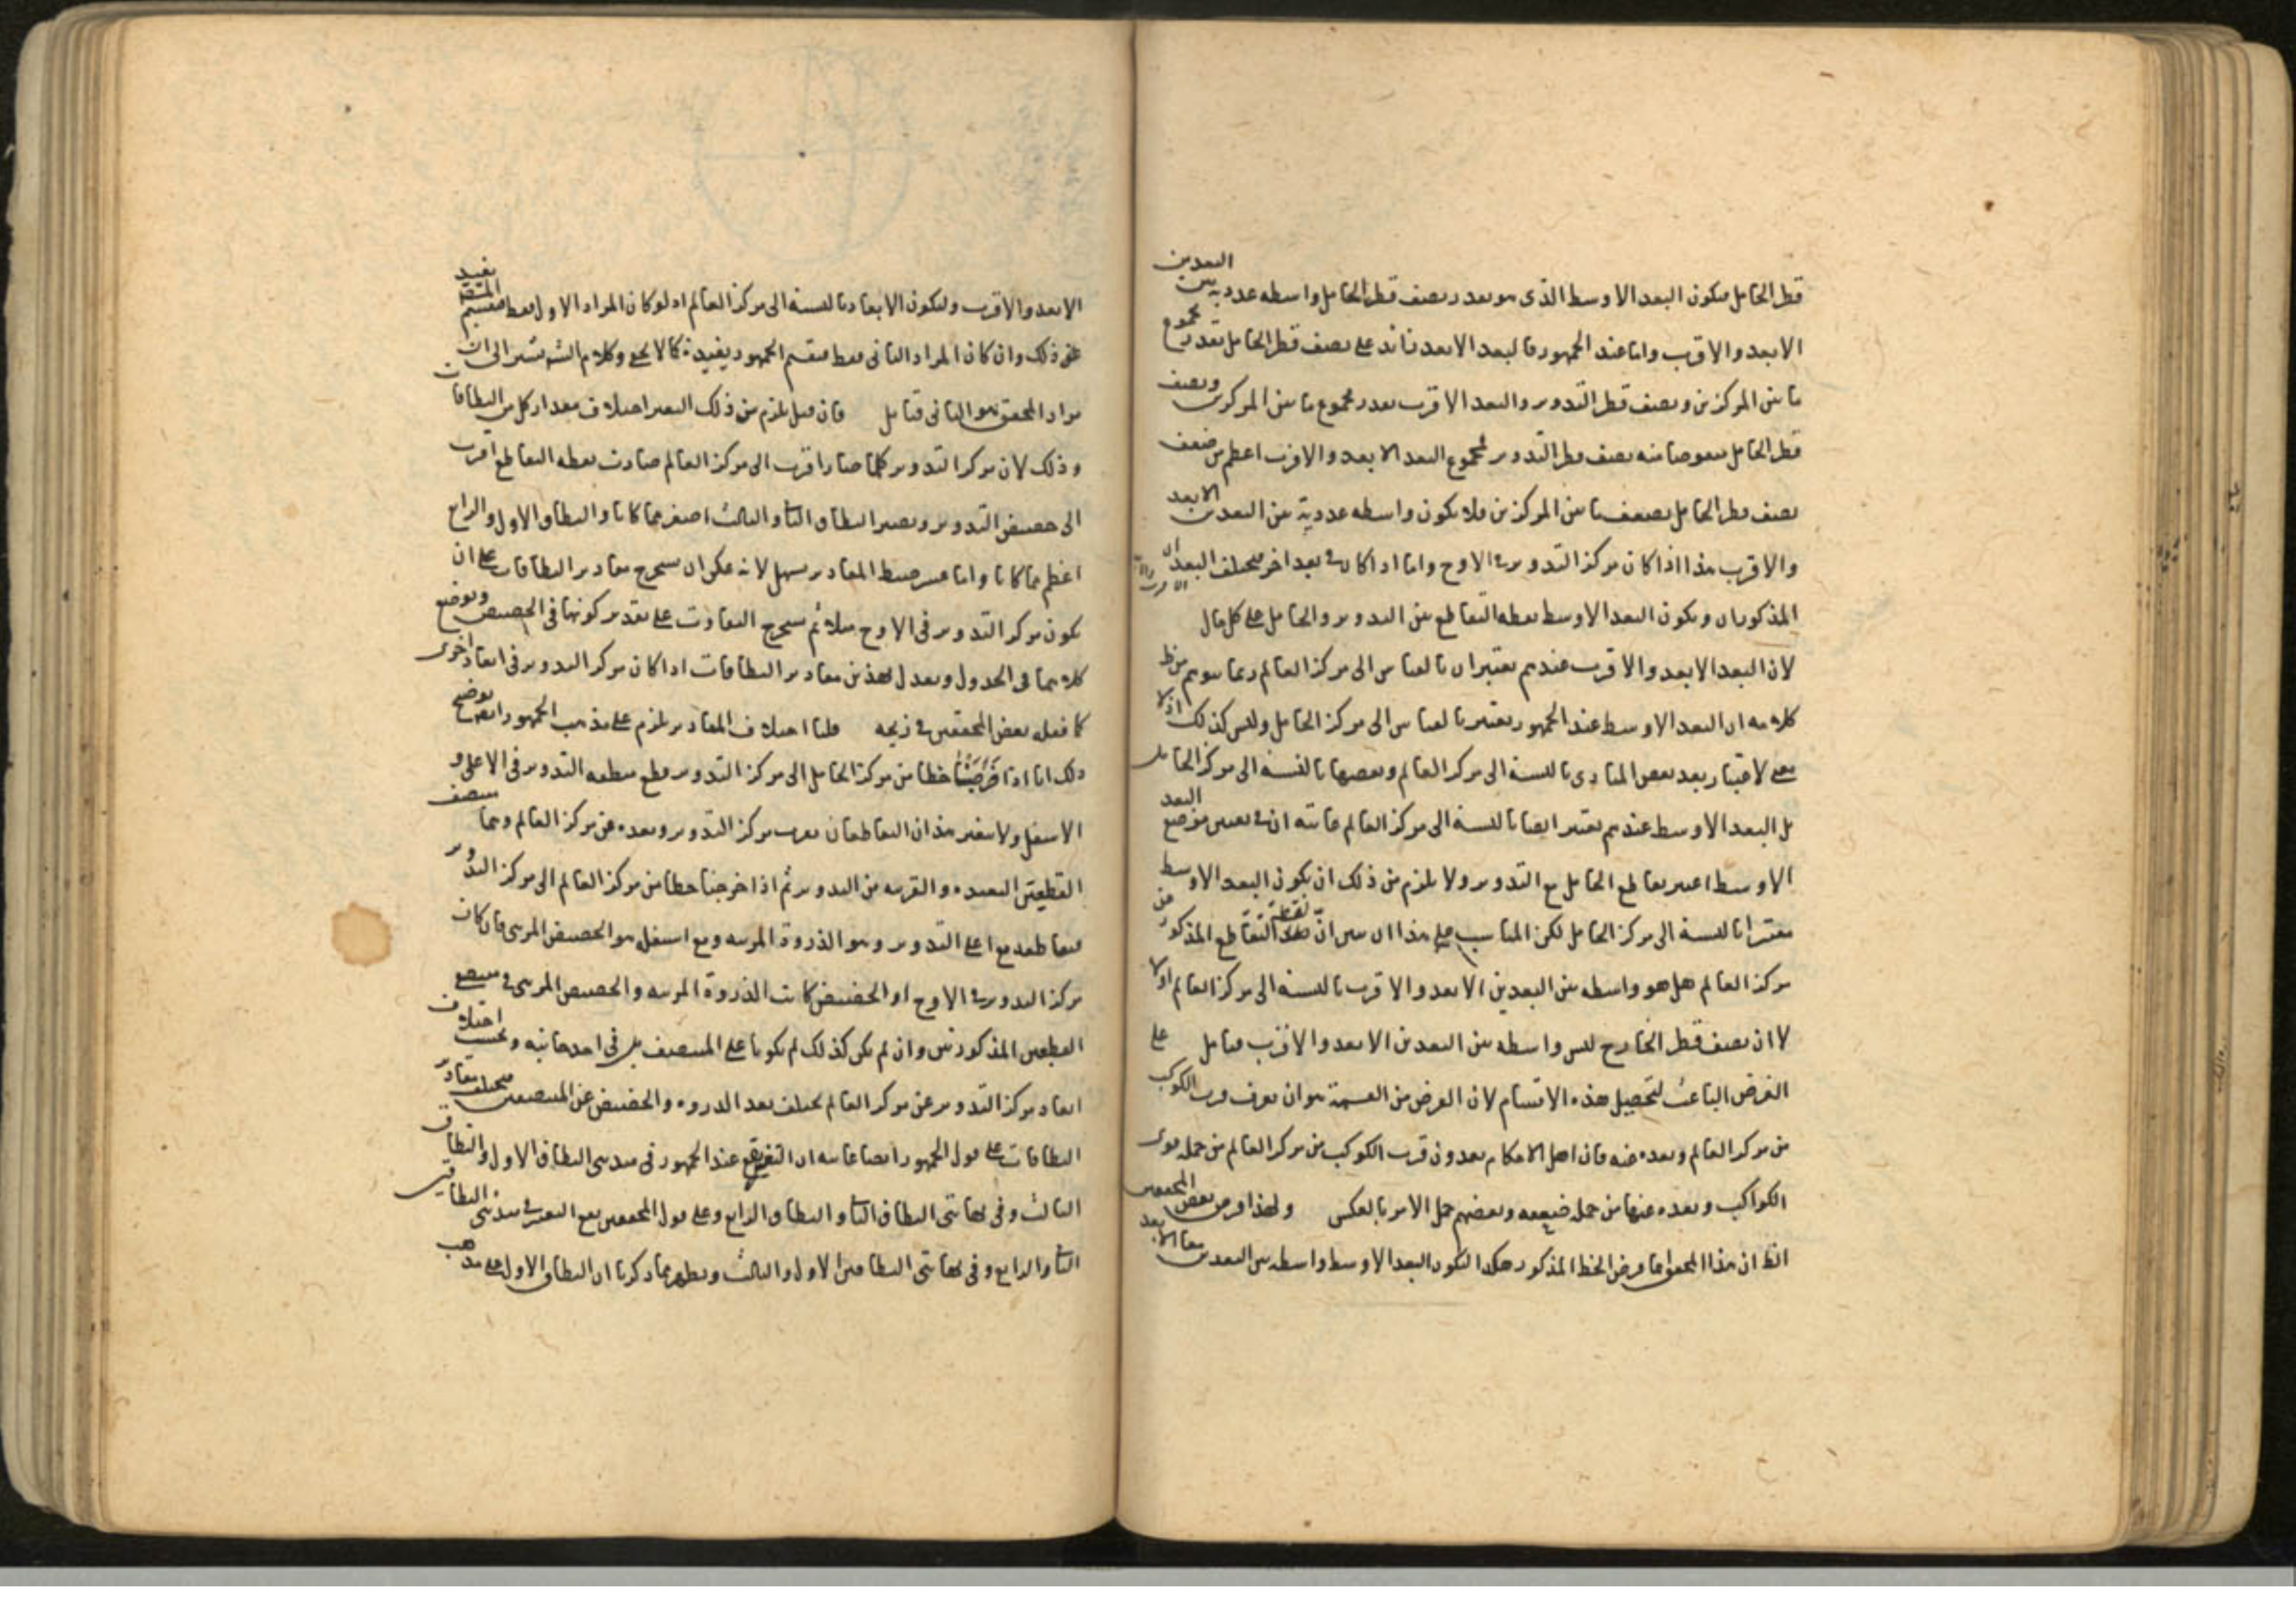 قطر الحامل فيكون البعد الاوسط الذى هو بعد ر نصف قطر الحامل واسطه عدديه بين البعدين
الابعد والاقرب واما عند الجمهور فالبعد الابعد زائد على نصف قطر الحامل بقدر مجموع
ما بين المركزين ونصف قطر التدوير والبعد الاقرب بقدر مجموع ما بين المركزين ونصف
قطر الحامل منقوصا منه نصف قطر التدوير فمجموع البعد الابعد والاقرب اعظم من ضعف
نصف قطر الحامل بضعف ما بين المركزين فلا يكون واسطه عددية بين البعدين الابعد
والاقرب هذا اذا كان مركز التدوير فى الاوج واما اذا كان فى بعد اخر فيختلف البعدان
المذكوران ويكون البعد الاوسط نقطه التقاطع بين التدوير والحامل على كل حال
لان البعد الابعد والاقرب عندهم يعتبران بالقياس الى مركز العالم ربما يتوهم من ظ
كلامه ان البعد الاوسط عند الجمهور يعتبر بالقياس الى مركز الحامل وليس كذلك اذ لا
معنى لاعتبار بعد بعض المبادى بالنسبة الى مركز العالم وبعضها بالنسبة الى مركز الحامل
بل البعد الاوسط عندهم يعتبر ايضا بالنسبة الى مركز العالم غايته ان فى تعيين موضع البعد
الاوسط اعتبر تقاطع الحامل مع التدوير ولا يلزم من ذلك ان يكون البعد الاوسط
معتبرا بالنسبة الى مركز الحامل لكن المناسب على هذا ان يبين ان نقطة التقاطع المذكور عن
مركز العالم هل هو واسطه بين البعدين الابعد والاقرب بالنسبة الى مركز العالم او لا
لا ان نصف قطر الخارج ليس واسطه بين البعدين الابعد والاقرب فتامل على
الغرض الباعث لتحصيل هذه الاقسام لان الغرض من القسمة هو ان يعرف قرب الكوكب
من مركز العالم وبعده عنه فان اهل الاحكام يعدون قرب الكوكب من مركز العالم من جمله قوى
الكواكب وبعده عنها من جمله ضعيفه وبعضهم جعل الامر بالعكس ولهذا فرض بعض المحققين
الظ ان هذا المحقق انما فرض الخط المذكور هكذا ليكون البعد الاوسط واسطه بين البعدين معا الابعد
الابعد والاقرب وليكون الابعاد بالنسبة الى مركز العالم اذ لو كان المراد الاول فقط فتقسيم المتقدمين
عن ذلك وان كان المراد الثانى فقط فتقسيم الجمهور يفيده كما لا يخفى وكلام الش يشير الى ان
مراد المحقق هو الثانى فتامل فان قيل يلزم من ذلك التغير اختلاف مقدار كل من النطاقات
وذلك لان مركز التدوير كلما صار اقرب الى مركز العالم صارت نقطه التقاطع اقرب
الى حضيض التدوير ويصير النطاق الثانى والثالث اصغر مما كانا والنطاق الاول والرابع
اعظم مما كانا واما عسر ضبط المقادير سهل لانه يمكن ان يستخرج مقادير النطاقات على ان
يكون مركز التدوير فى الاوج مثلا ثم يستخرج التفاوت على تقدير كونها فى الحضيض ويوضع
كلاهما فى الجدول ويعدل بهذين مقادير النطاقات اذا كان مركز التدوير فى ابعاد اخرى
كما فعله بعض المحققين فى زيجه قلنا اختلاف المقادير يلزم على مذهب الجمهور ايضا توضيح
ذلك انا اذا فرضنا خطا من مركز الحامل الى مركز التدوير قطع منطقه التدوير فى الاعلى و
الاسفل ولا يتغير هذان التقاطعان بقرب مركز التدوير وبعده عن مركز العالم وهما منتصف
القطعتين البعيده والقريبه من التدوير ثم اذا اخرجنا خطا من مركز العالم الى مركز التدوير
فتقاطعه مع اعلى التدوير وهو الذروة المرئيه ومع اسفل هو الحضيض المرئى فان كان
مركز التدوير فى الاوج او الحضيض كانت الذروة المرئيه والحضيض المرئى فى منتصفى
القطعتين المذكورتين وان لم يكن كذلك لم يكونا على المنتصف بل فى احد جانبيه وبحسب اختلاف
ابعاد مركز التدوير عن مركز العالم يختلف بعد الذروه والحضيض عن المنتصفين فيختلف مقادير
النطاقات على قول الجمهور ايضا غايته ان التغير يقع عند الجمهور فى مبدئى النطاق الاول والنطاق
الثالث وفى نهايتى النطاق الثانى والنطاق الرابع وعلى قول المحققين يقع التغير فى مبدئى النطاقين
الثانى والرابع وفى نهايتى النطاقين الاول والثالث ويظهر مما ذكرنا ان النطاق الاول على مذهب